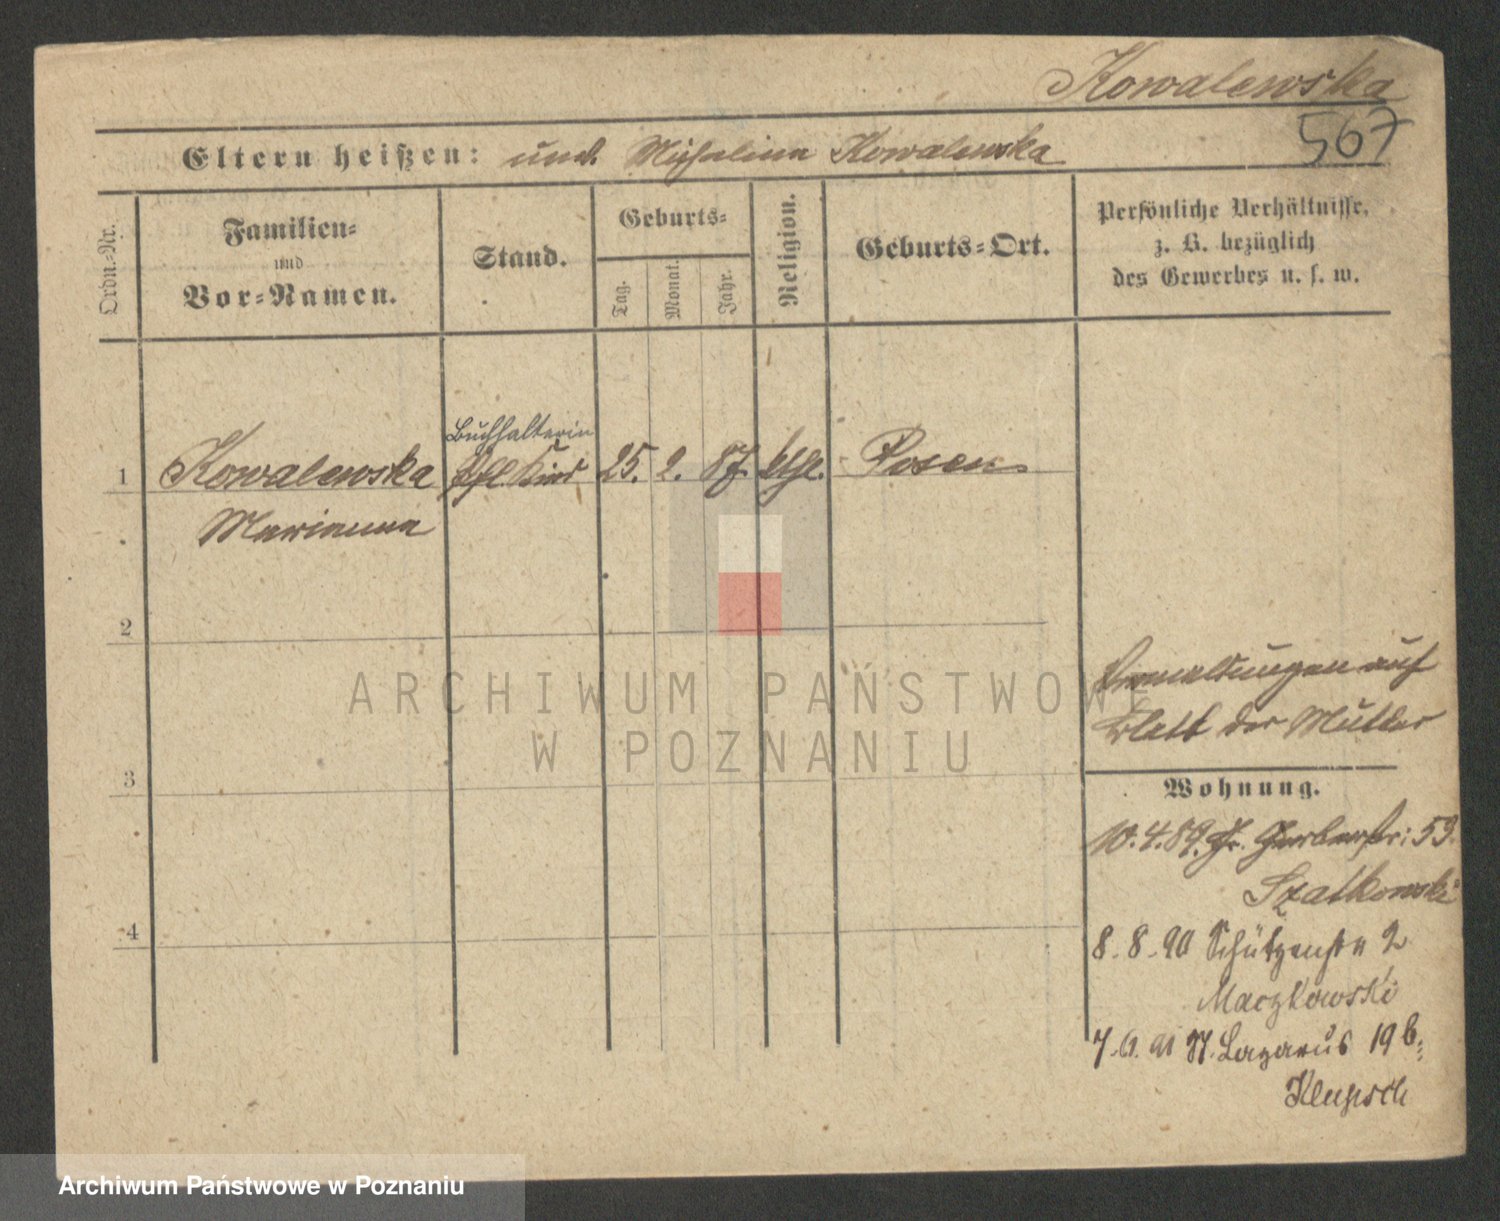 Kowalewska
567
Eltern heißen: unv. Michalina Kowalewska
Ordn.-Nr.
Familien-
und
Vor-Namen.
Stand.
Geburts-
Tag.
Monat.
Jahr.
Religion.
Geburts-Ort.
Persönliche Verhältnisse,
z. B. bezüglich
des Gewerbes u. s. w.
Buchhalterin
1 Kowalewska Pfl. Kind 25. 2. 87. kth. Posen
Marianna
2
3
4
auf
Blatt der Mutter
Wohnung.
10.4.89. Gr. Gerberstr: 53.
Szatkowski
8.-8.-90 Schützenstr 2
Maczkowski
7. 91 St. Lazarus 19b
ARCHIWUM PAŃSTWOWE
W POZNANIU
Archiwum Państwowe w Poznaniu